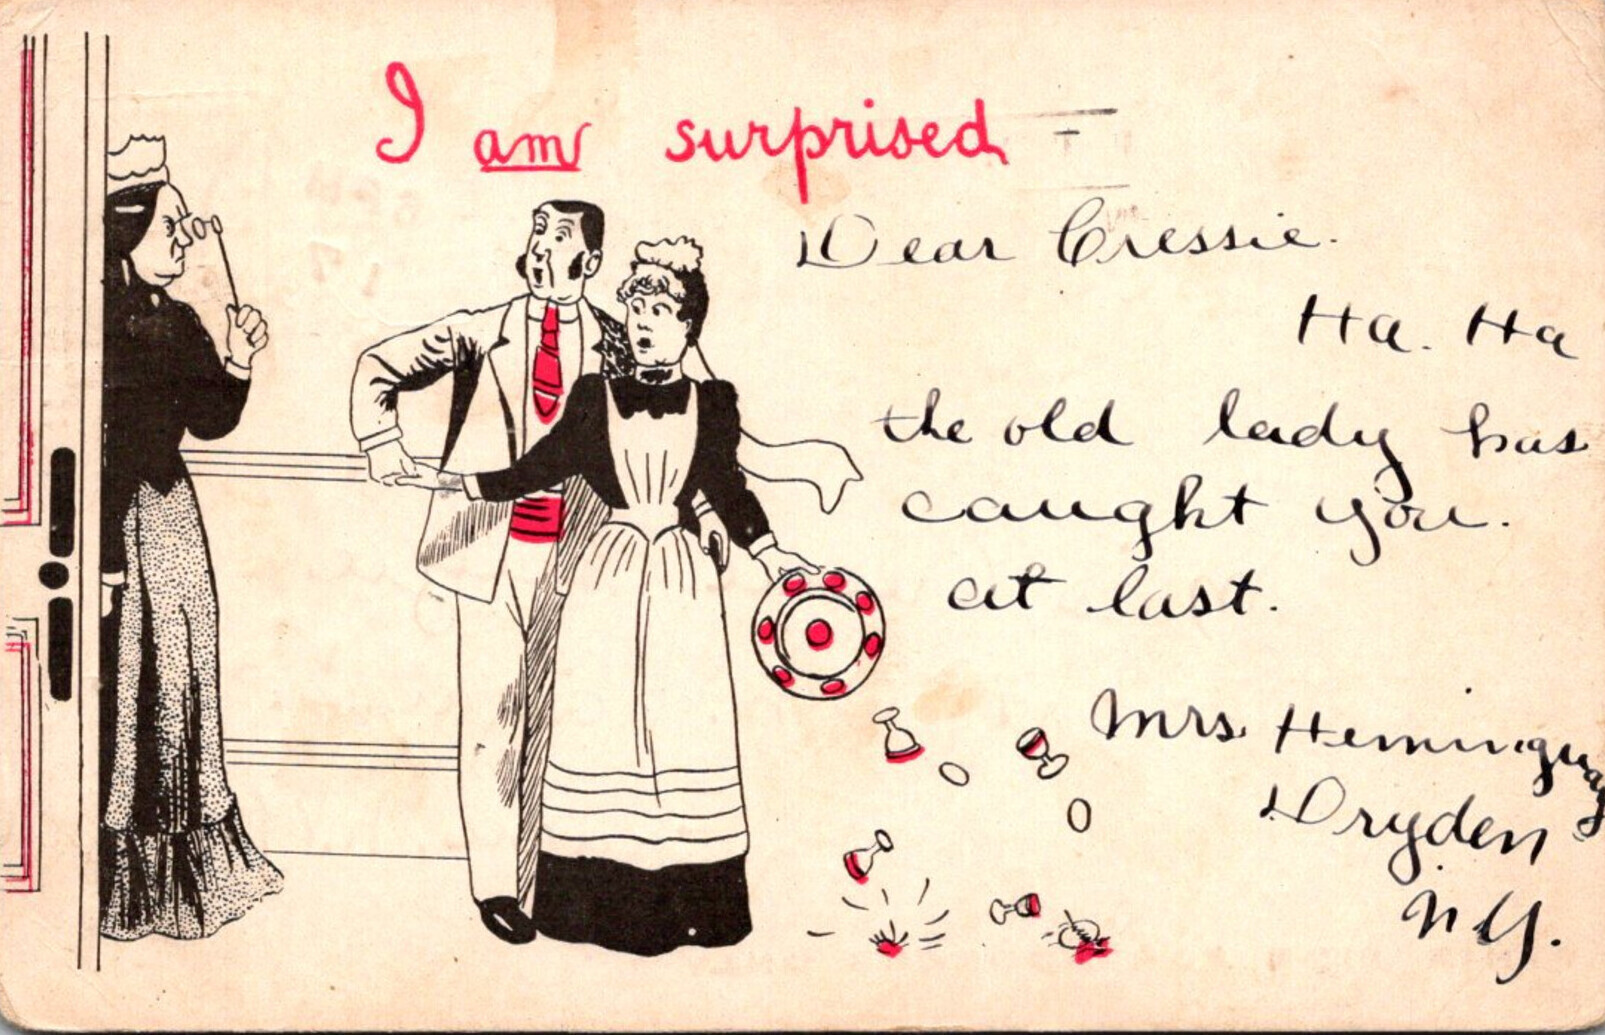 I am surprised
Dear Cressie.
Ha. Ha
the old lady has
caught you.
at last.
Mrs. Hemingway
Dryden
N.Y.